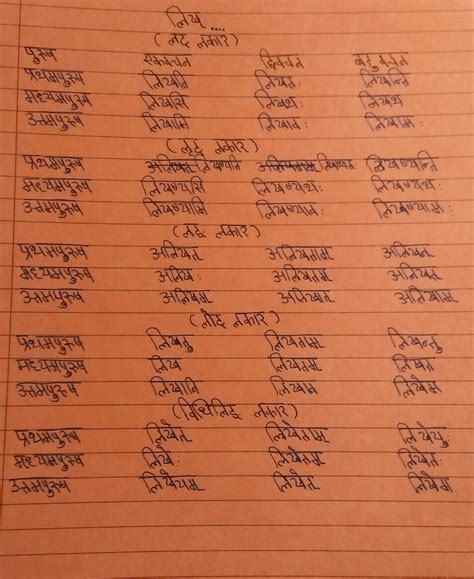 लिख ....
( लट् लकार)
पुरुष एकवचन द्विवचन बहुवचन
प्रथमपुरुष लिखति लिखतः लिखन्ति
मध्यमपुरुष लिखसि लिखथः लिखथ
उत्तमपुरुष लिखामि लिखावः लिखामः
(लृट् लकार)
प्रथमपुरुष लिखिष्यन्ति
मध्यमपुरुष
उत्तमपुरुष
(लङ् लकार)
प्रथमपुरुष अलिखत् अलिखताम् अलिखन्
मध्यमपुरुष अलिखः अलिखतम् अलिखत
उत्तमपुरुष अलिखम् अलिखाव अलिखाम
(लोट् लकार)
प्रथमपुरुष लिखतु लिखताम् लिखन्तु
मध्यमपुरुष लिख लिखतम् लिखत
उत्तमपुरुष लिखानि लिखाव लिखाम
(विधिलिङ् लकार)
प्रथमपुरुष लिखेत् लिखेताम् लिखेयुः
मध्यमपुरुष लिखेः लिखेतम् लिखेत
उत्तमपुरुष लिखेयम् लिखेव लिखेम